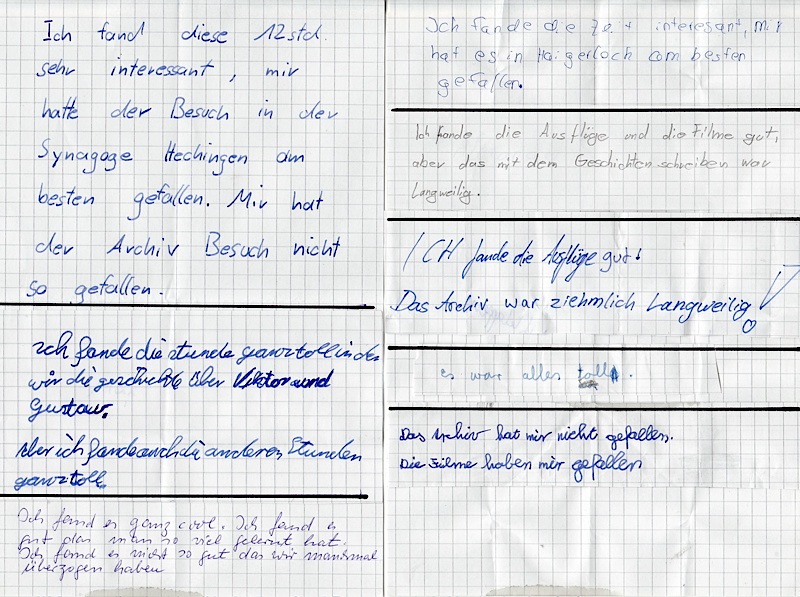 Ich fand diese 12std.
sehr interessant, mir
hatte der Besuch in der
Synagoge Hechingen am
besten gefallen. Mir hat
der Archiv Besuch nicht
so gefallen.
Ich fande die stunde ganz toll in der
wir die geschichte über Viktor und
Gustav.
Aber ich fande auch die anderen Stunden
ganz toll.
Ich fand es ganz cool. Ich fand es
gut das man so viel gelernt hat.
Ich fand es nicht so gut das wir manchmal
überzogen haben
Ich fande die Zeit interesant, mir
hat es in Haigerloch am besten
gefallen.
Ich fande die Ausflüge und die Filme gut,
aber das mit dem Geschichten schreiben war
Langweilig.
ICH fande die Ausflüge gut!
Das Archiv war ziehmlich Langweilig!
es war alles toll.
Das Archiv hat mir nicht gefallen.
Die Filme haben mir gefallen